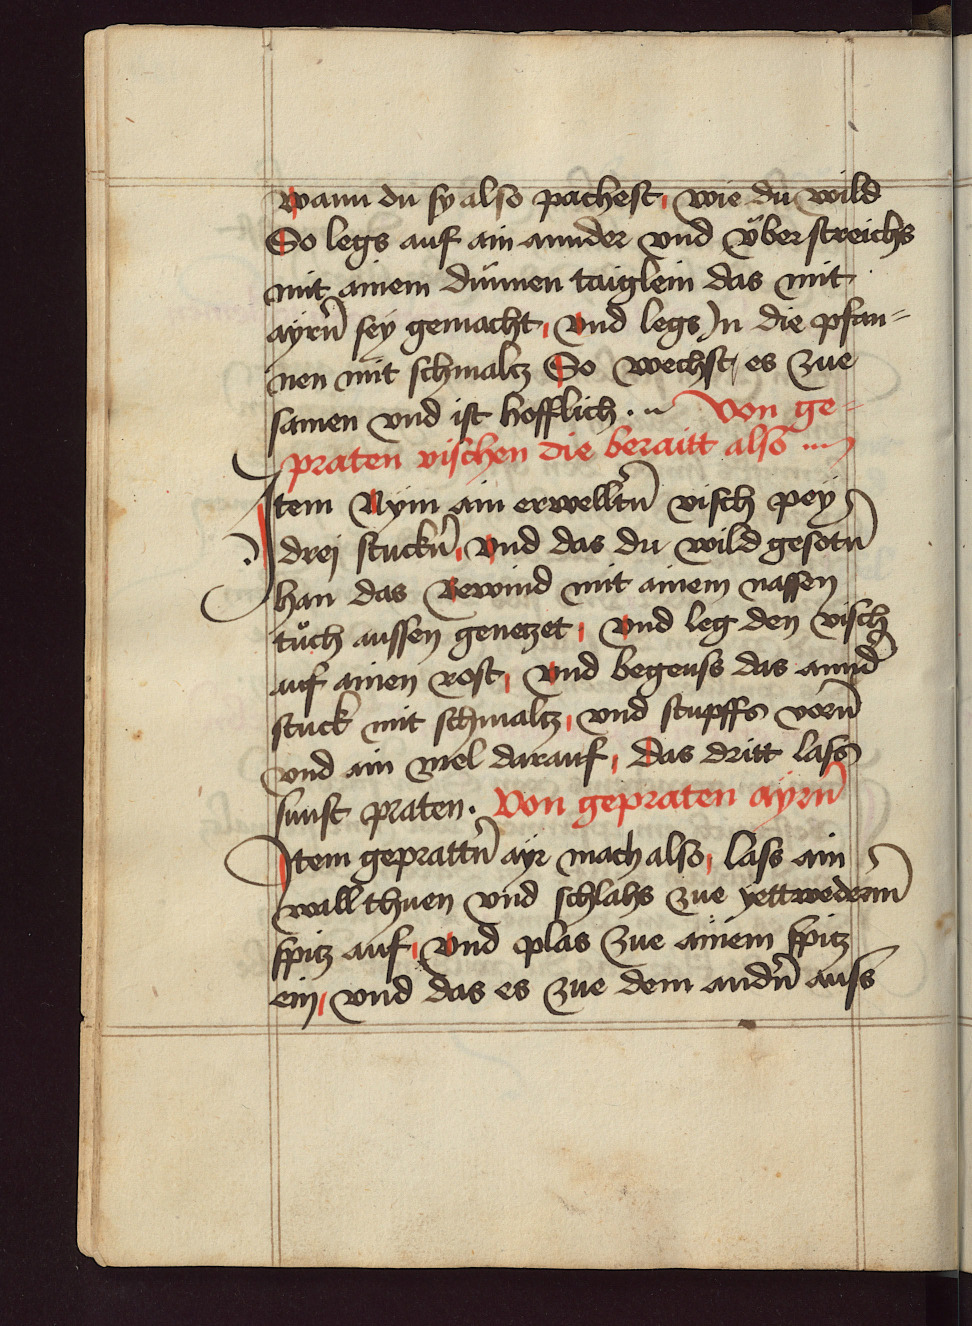 wann du sy also pachest, wie du wild
So legs auf ain annder vnd v̈berstreichs
mit ainem dünnen taiglein das mit
ayrn̄ sey gemacht, vnd legs Jn die pfan-
nen mit schmaltz So wechst es zue
samen vnd ist hofflich. Von ge-
praten vischen die beraitt also
Jtem Nym ain erwelltn̄ visch pey
drej stuckn̄, vnd das du wild gesotn̄
han das bewind mit ainem nassen
tůch aussen genetzet, vnd leg den visch
auf ainen rost, vnd begeuss das annd̄
stuck mit schmaltz, vnd stupffs vorn̄
vnd ain mel darauf, das dritt lass
sunst praten. Von gepraten ayrn̄
Jtem geprattn̄ ayr mach also, lass ain
wall thuen vnd schlahs zue yettwederm̄
spitz auf, vnd plas zue ainem spitz
ein, vnd das es zue dem andn̄ auss